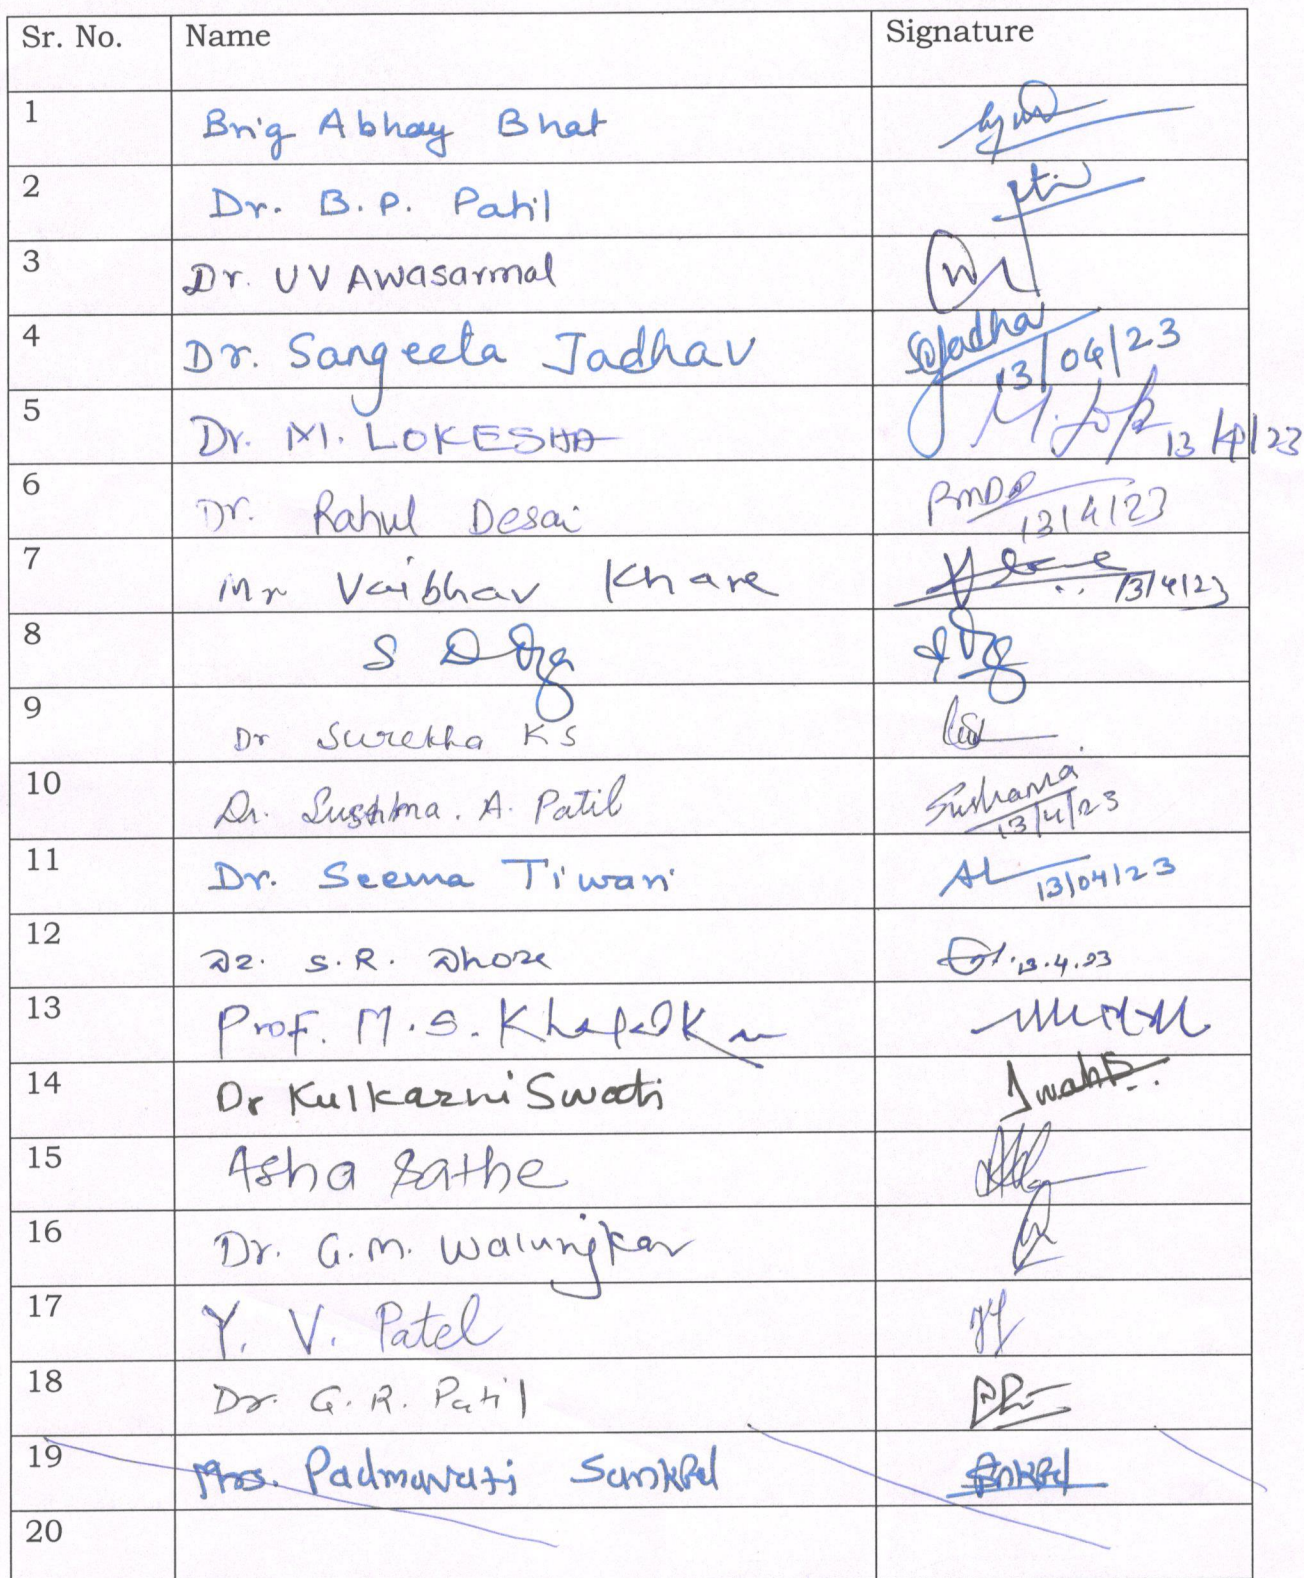 Sr. No. Name Signature
1 Brig Abhay Bhat
2 Dr. B.P. Patil
3 Dr. UV Awasarmal
4 Dr. Sangeeta Jadhav Jadhav 13/04/23
5 Dr. M. LOKESHA 13/4/23
6 Dr. Rahul Desai 13/4/23
7 Mr Vaibhav Khare 13/4/23
8 S D
9 Dr Surekha K S
10 Dr. Sushma. A. Patil Sushama 13/4/23
11 Dr. Seema Tiwari 13/04/23
12 Dr. S.R. Dhore 13.4.23
13 Prof. M.S.
14 Dr Kulkarni Swati
15 Asha Sathe
16 Dr. G.M. Walunjkar
17 Y. V. Patel
18 Dr. G.R. Patil
19 Mrs. Padmavati Sarikpal
20